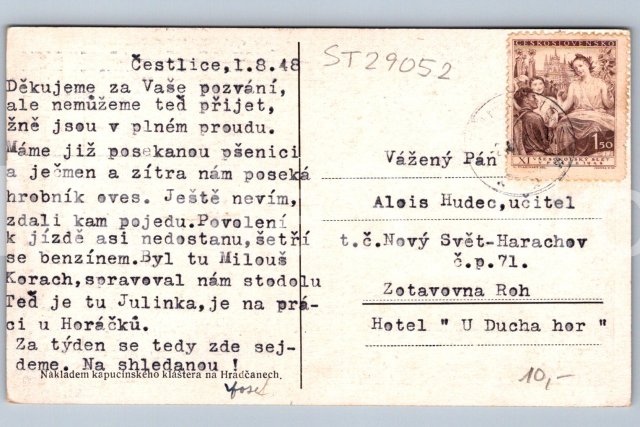 Čestlice,1.8.48
Děkujeme za Vaše pozvání,
ale nemůžeme teď přijet,
žně jsou v plném proudu.
Máme již posekanou pšenici
a ječmen a zítra nám poseká
hrobník oves. Ještě nevím,
zdali kam pojedu.Povolení
k jízdě asi nedostanu,šetří
se benzínem.Byl tu Milouš
Korach,spravoval nám stodolu
Teď je tu Julinka,je na prá-
ci u Horáčků.
Za týden se tedy zde sej-
deme. Na shledanou !
Nákladem kapucínského kláštera na Hradčanech.
Josef
ST29052
ČESKOSLOVENSKO
1.50
XI
Vážený Pán
Alois Hudec,učitel
t.č.Nový Svět-Harachov
č.p.71.
Zotavovna Roh
Hotel " U Ducha hor "
10,-